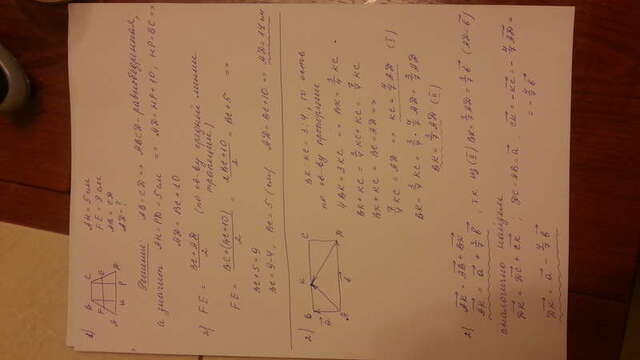 1)
B C
F E
A H P D
AH = 5 см
FE = 9 см
AB = CD
AD - ?
Решение: AB = CD => ABCD - равнобедренная,
а значит AH = PD = 5 см => AD = HP + 10, HP = BC =>
AD = BC + 10
2) FE = BC + AD / 2 (по св-ву средней линии
трапеции)
FE = BC + (BC + 10) / 2 = 2BC + 10 / 2 = BC + 5 =>
BC + 5 = 9
BC = 9 - 4, BC = 5 (см) AD = BC + 10 => AD = 14 см
2)
B K C
a
A b D
BK : KC = 3 : 4, то есть
по св-ву пропорции
4BK = 3KC => BK = 3/4 KC
BK + KC = 3/4 KC + KC = 7/4 KC
BK + KC = BC = AD =>
7/4 KC = AD => KC = 4/7 AD (I)
BK = 3/4 KC = 3/4 · 4/7 AD = 3/7 AD
BK = 3/7 AD (II)
2) AK = AB + BK
AK = a + 3/7 b , т.к из (II) BK = 3/7 AD = 3/7 b (AD = b)
аналогично найдем
DK = DC + CK ; DC = AB = a , CK = -KC = - 4/7 AD =
= - 4/7 b
DK = a - 4/7 b